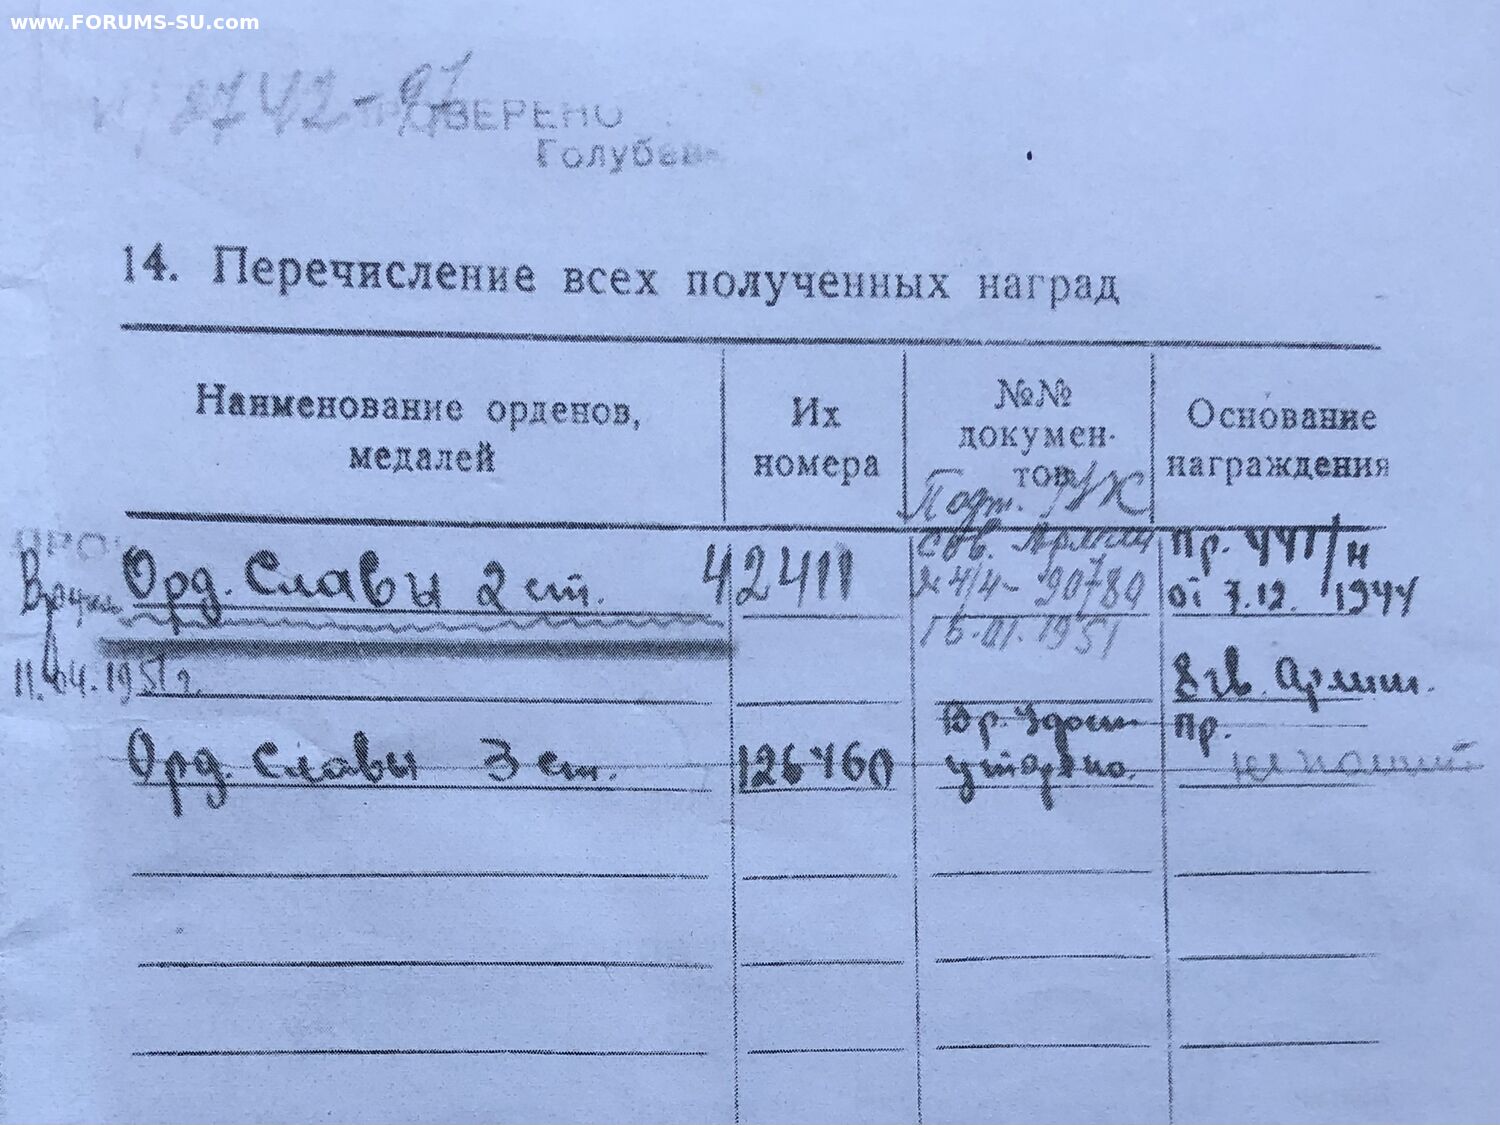 www.FORUMS-SU.com
8742-97
ПРОВЕРЕНО
Голубева
14. Перечисление всех полученных наград
Наименование орденов,
медалей
Их
номера
№№
докумен-
тов
Основание
награждения
Подт. УК
Сов. Армии
№ 4/4-90780
15.01.1951
Вручен
11.04.1951г.
Орд. Славы 2 ст.
42411
Пр. 447/н
от 7.12. 1944
8 гв. Армии.
Орд. Славы 3 ст.
126460
Вр. Удост
утеряно.
Пр.